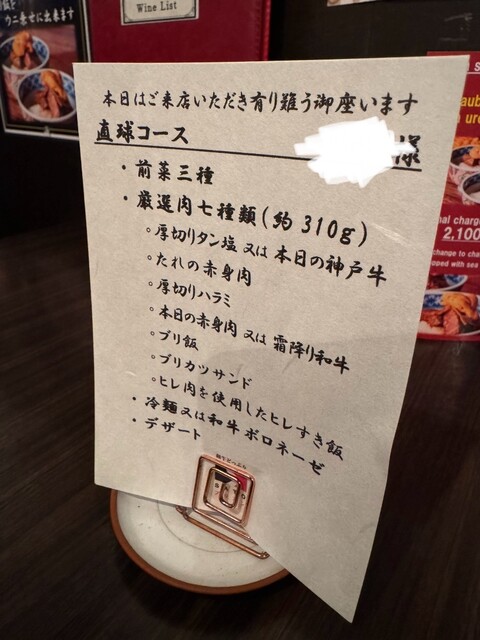 ウニ乗せに出来ます
Wine List
本日はご来店いただき有り難う御座います
直球コース
様
・前菜三種
・厳選肉七種類(約310g)
○厚切りタン塩 又は 本日の神戸牛
○たれの赤身肉
○厚切りハラミ
○本日の赤身肉 又は 霜降り和牛
○ブリ飯
○ブリカツサンド
○ヒレ肉を使用したヒレすき飯
・冷麺又は和牛ボロネーゼ
・デザート
2,100